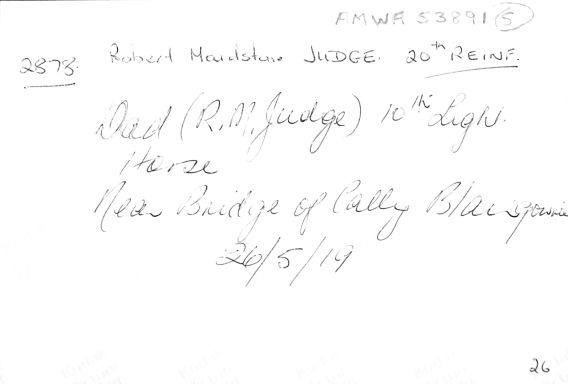 AMWA 53891 5
2873. Robert Maidstone JUDGE. 20th REINF.
Dad (R.M. Judge) 10th Light
Horse
Near Bridge of Cally Blairgowrie
26/5/19
26